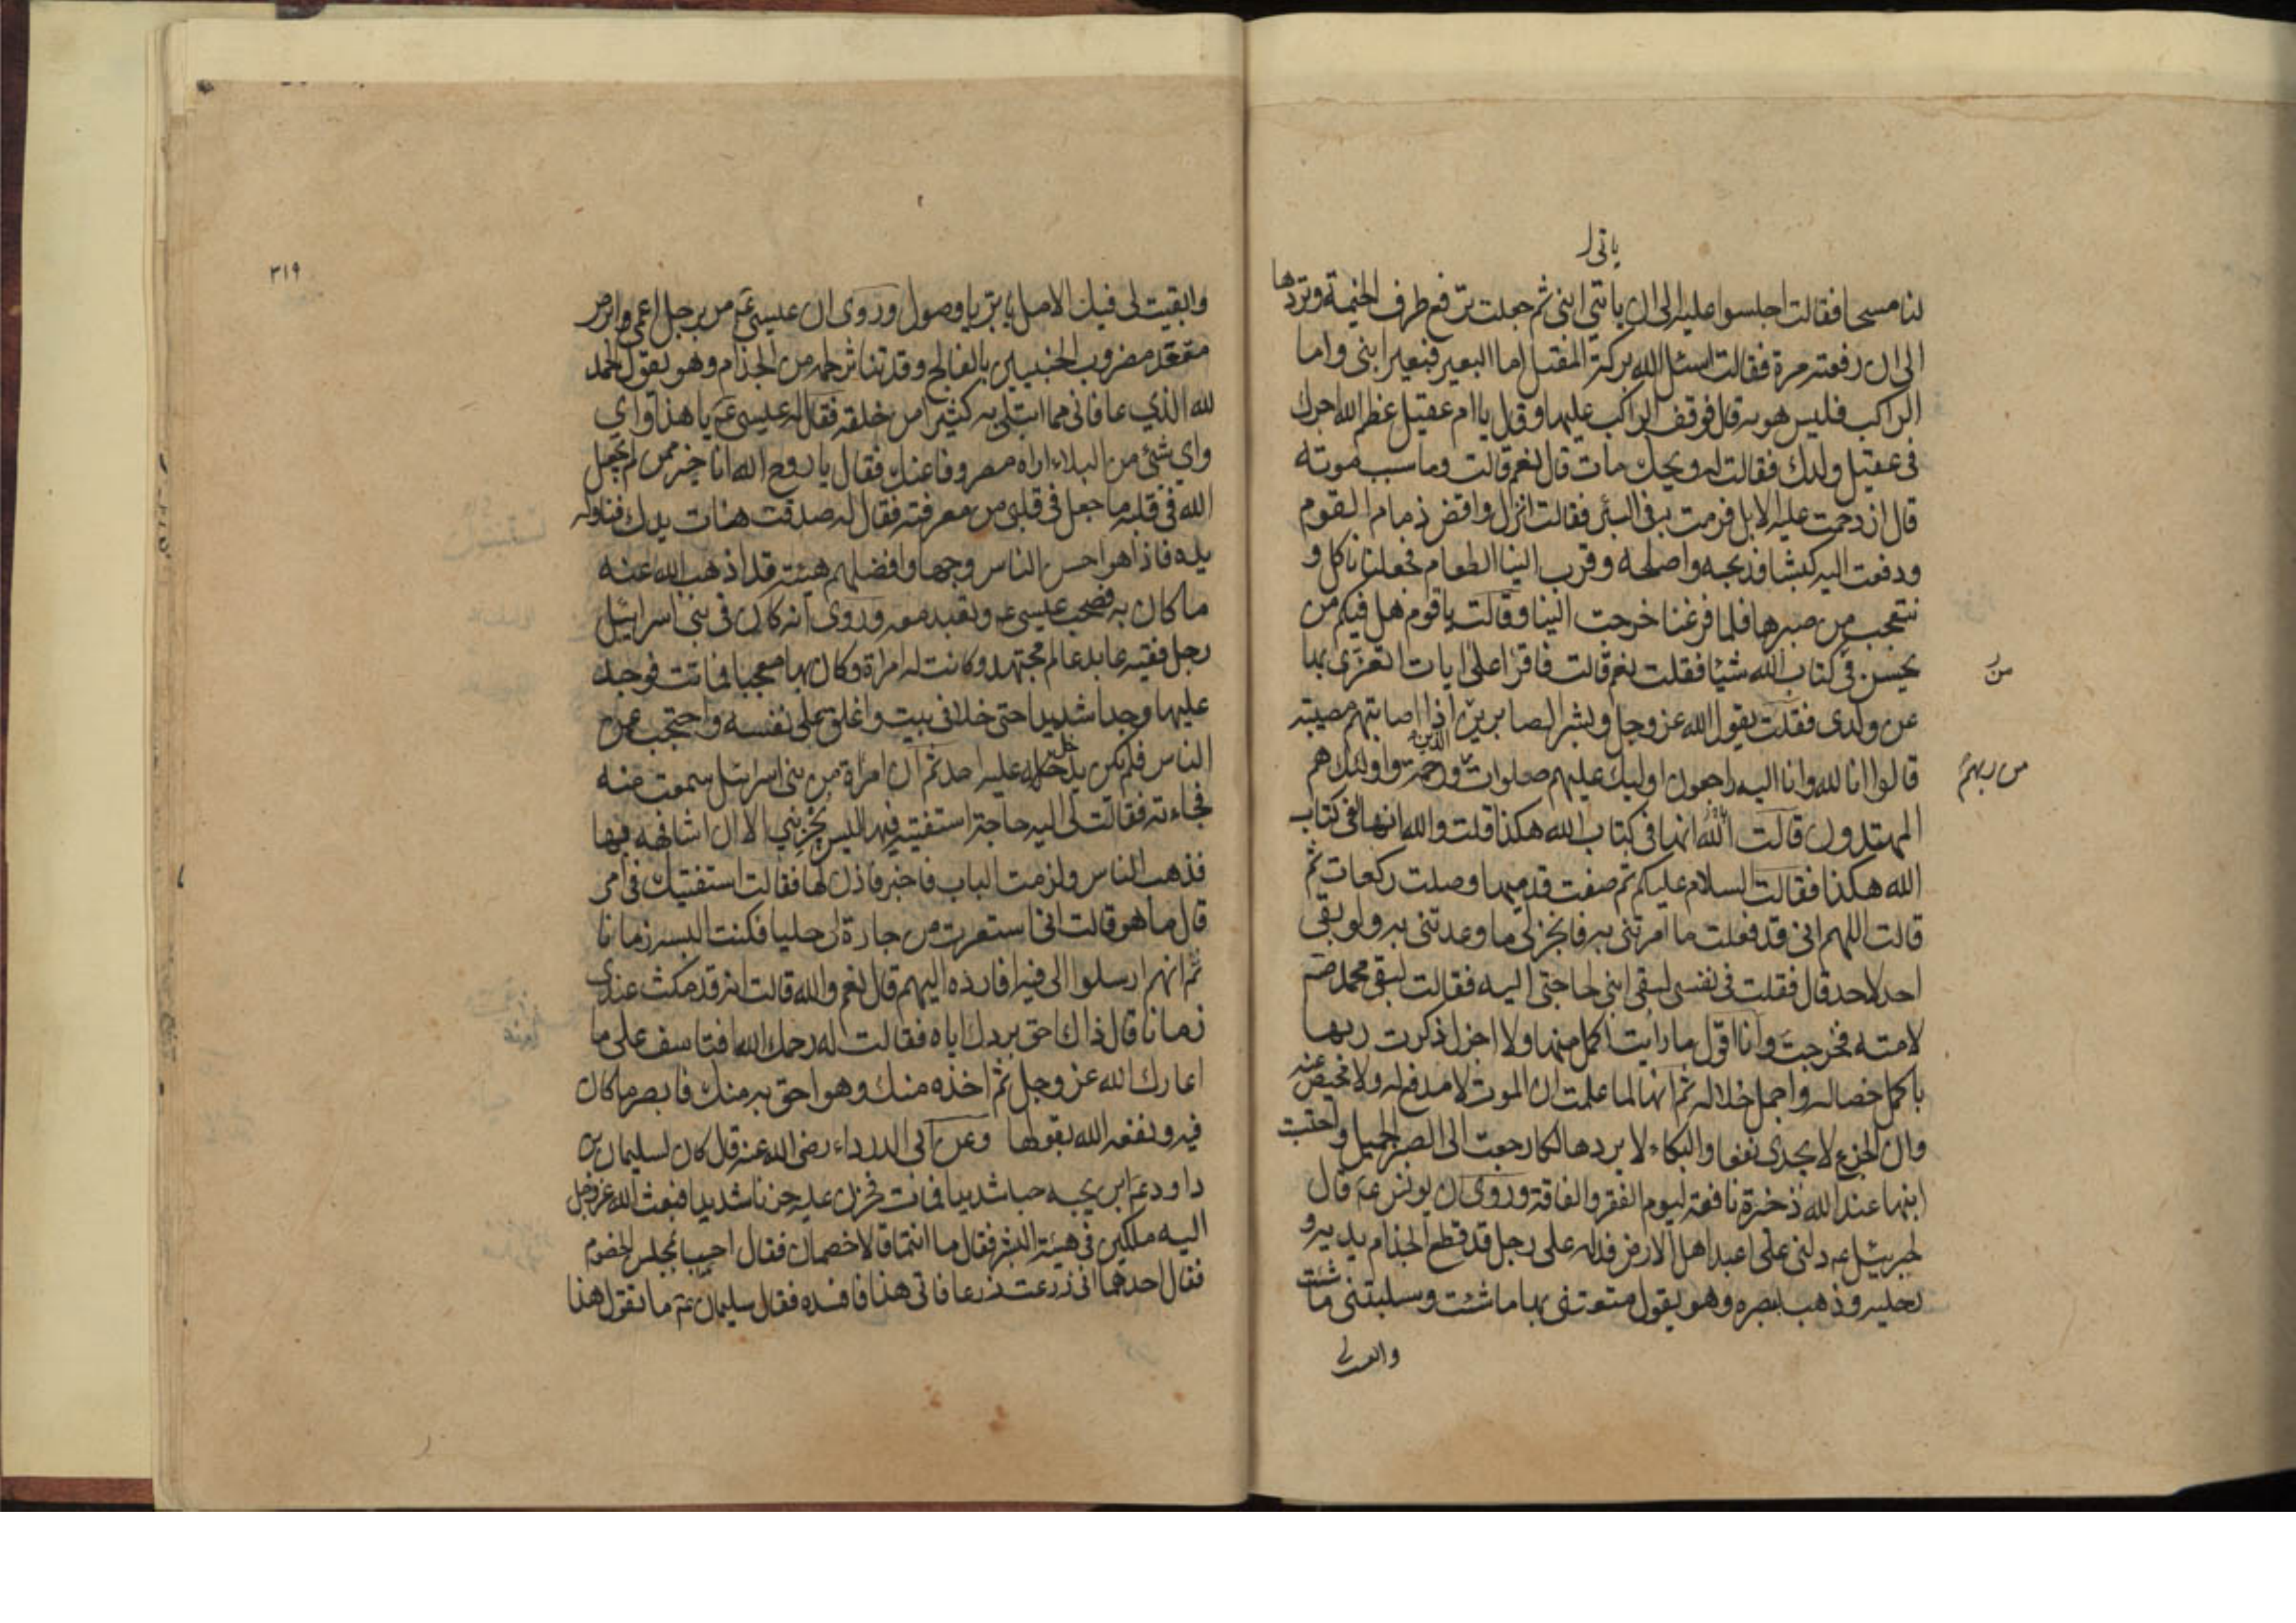 ياتى ر
لنا مسحا فقالت اجلسوا عليه الى ان ياتى ابنى ثم جعلت ترفع طرف الخيمة وتردها
الى ان رفعته مرة فقالت اسئل الله بركة المقبل اما البعير فبعير ابنى واما
الراكب فليس هو به قال فوقف الراكب عليها وقال يا ام عقيل عظم الله اجرك
فى عقيل ولدك فقالت له ويحك مات قال نعم قالت وما سبب موته
قال ازدحمت عليه الابل فرمت به فى البئر فقالت انزل واقض ذمام القوم
ودفعت اليه كبشا فذبحه واصلحه وقرب الينا الطعام فجعلنا ناكل و
نتعجب من صبرها فلما فرغنا خرجت الينا وقالت يا قوم هل فيكم من
يحسن فى كتاب الله شيئا فقلت نعم قالت فاقرا على ايات اتعزى بها
من
عن ولدى فقلت يقول الله عز وجل وبشر الصابرين الذين اذا اصابتهم مصيبة
قالوا انا لله وانا اليه راجعون اوليك عليهم صلوات ورحمة واولئك هم
من ربهم
المهتدون قالت الله انها فى كتاب الله هكذا قلت والله انها لفى كتاب
الله هكذا فقالت السلام عليكم ثم صفت قدميها وصلت ركعات ثم
قالت اللهم انى قد فعلت ما امرتنى به فانجز لى ما وعدتنى به ولو بقى
احد لاحد قال فقلت فى نفسى لبقى ابنى لحاجتى اليه فقالت لبقى محمد صم
لامته فخرجت وانا اقول ما رايت اكمل منها ولا اجزل ذكرت ربها
باكمل خصاله واجمل خلاله ثم انها لما علمت ان الموت لا مدفع له ولا محيص عنه
وان الجزع لا يجدى نفعا والبكاء لا يرد هالكا رجعت الى الصبر الجميل واحتسبت
ابنها عند الله ذخيرة نافعة ليوم الفقر والفاقة وروى ان يونس عم قال
لجبرئيل عم دلنى على اعبد اهل الارض فدله على رجل قد قطع الجذام يديه و
رجليه وذهب ببصره وهو يقول متعتنى بها ما شئت وسلبتنى ما شئت
وابقيت لى
٣١٩
وابقيت لى فيك الامل يا بر يا وصول وروى ان عيسى عم مر برجل اعمى وابرص
مقعد مضروب الجنبين بالفالج وقد تناثر لحمه من الجذام وهو يقول الحمد
لله الذي عافانى مما ابتلى به كثيرا من خلقه فقال له عيسى عم يا هذا واي
واي شئ من البلاء اراه مصروفا عنك فقال يا روح الله انا خير ممن لم يجعل
الله فى قلبه ما جعل فى قلبى من معرفته فقال له صدقت هات يدك فناوله
يده فاذا هو احسن الناس وجها وافضلهم هيئة قد اذهب الله عنه
ما كان به فصحب عيسى عم وتعبد معه وروى انه كان فى بنى اسرائيل
رجل فقيه عابد عالم مجتهد وكانت له امراة وكان بها معجبا فماتت فوجد
عليها وجدا شديدا حتى خلا فى بيت واغلق على نفسه واحتجب عن
الناس فلم يكن يدخل عليه احد ثم ان امراة من بنى اسرائيل سمعت منه
فجاءته فقالت لى اليه حاجة استفتيه فيها ليس يجزيني الا ان اشافهه فيها
فذهب الناس ولزمت الباب فاخبر فاذن لها فقالت استفتيك فى امر
قال ما هو قالت انى استعرت من جارة لى حليا فكنت البسه زمانا
ثم انهم ارسلوا الى فيه افارده اليهم قال نعم والله قالت انه قد مكث عندى
زمانا قال ذاك احق بردك اياه فقالت له رحمك الله افتاسف على ما
اعارك الله عز وجل ثم اخذه منك وهو احق به منك فابصر ما كان
فيه ونفعه الله بقولها وعن ابى الدرداء رضى الله عنه قال كان لسليمان بن
داود عم ابن يحبه حبا شديدا فمات فحزن عليه حزنا شديدا فبعث الله عز وجل
اليه ملكين فى هيئة البشر فقال ما انتما قالا خصمان فقال اجلسا مجلس الخصوم
فقال احدهما انى زرعت زرعا فاتى هذا فافسده فقال سليمان عم ما تقول هذا